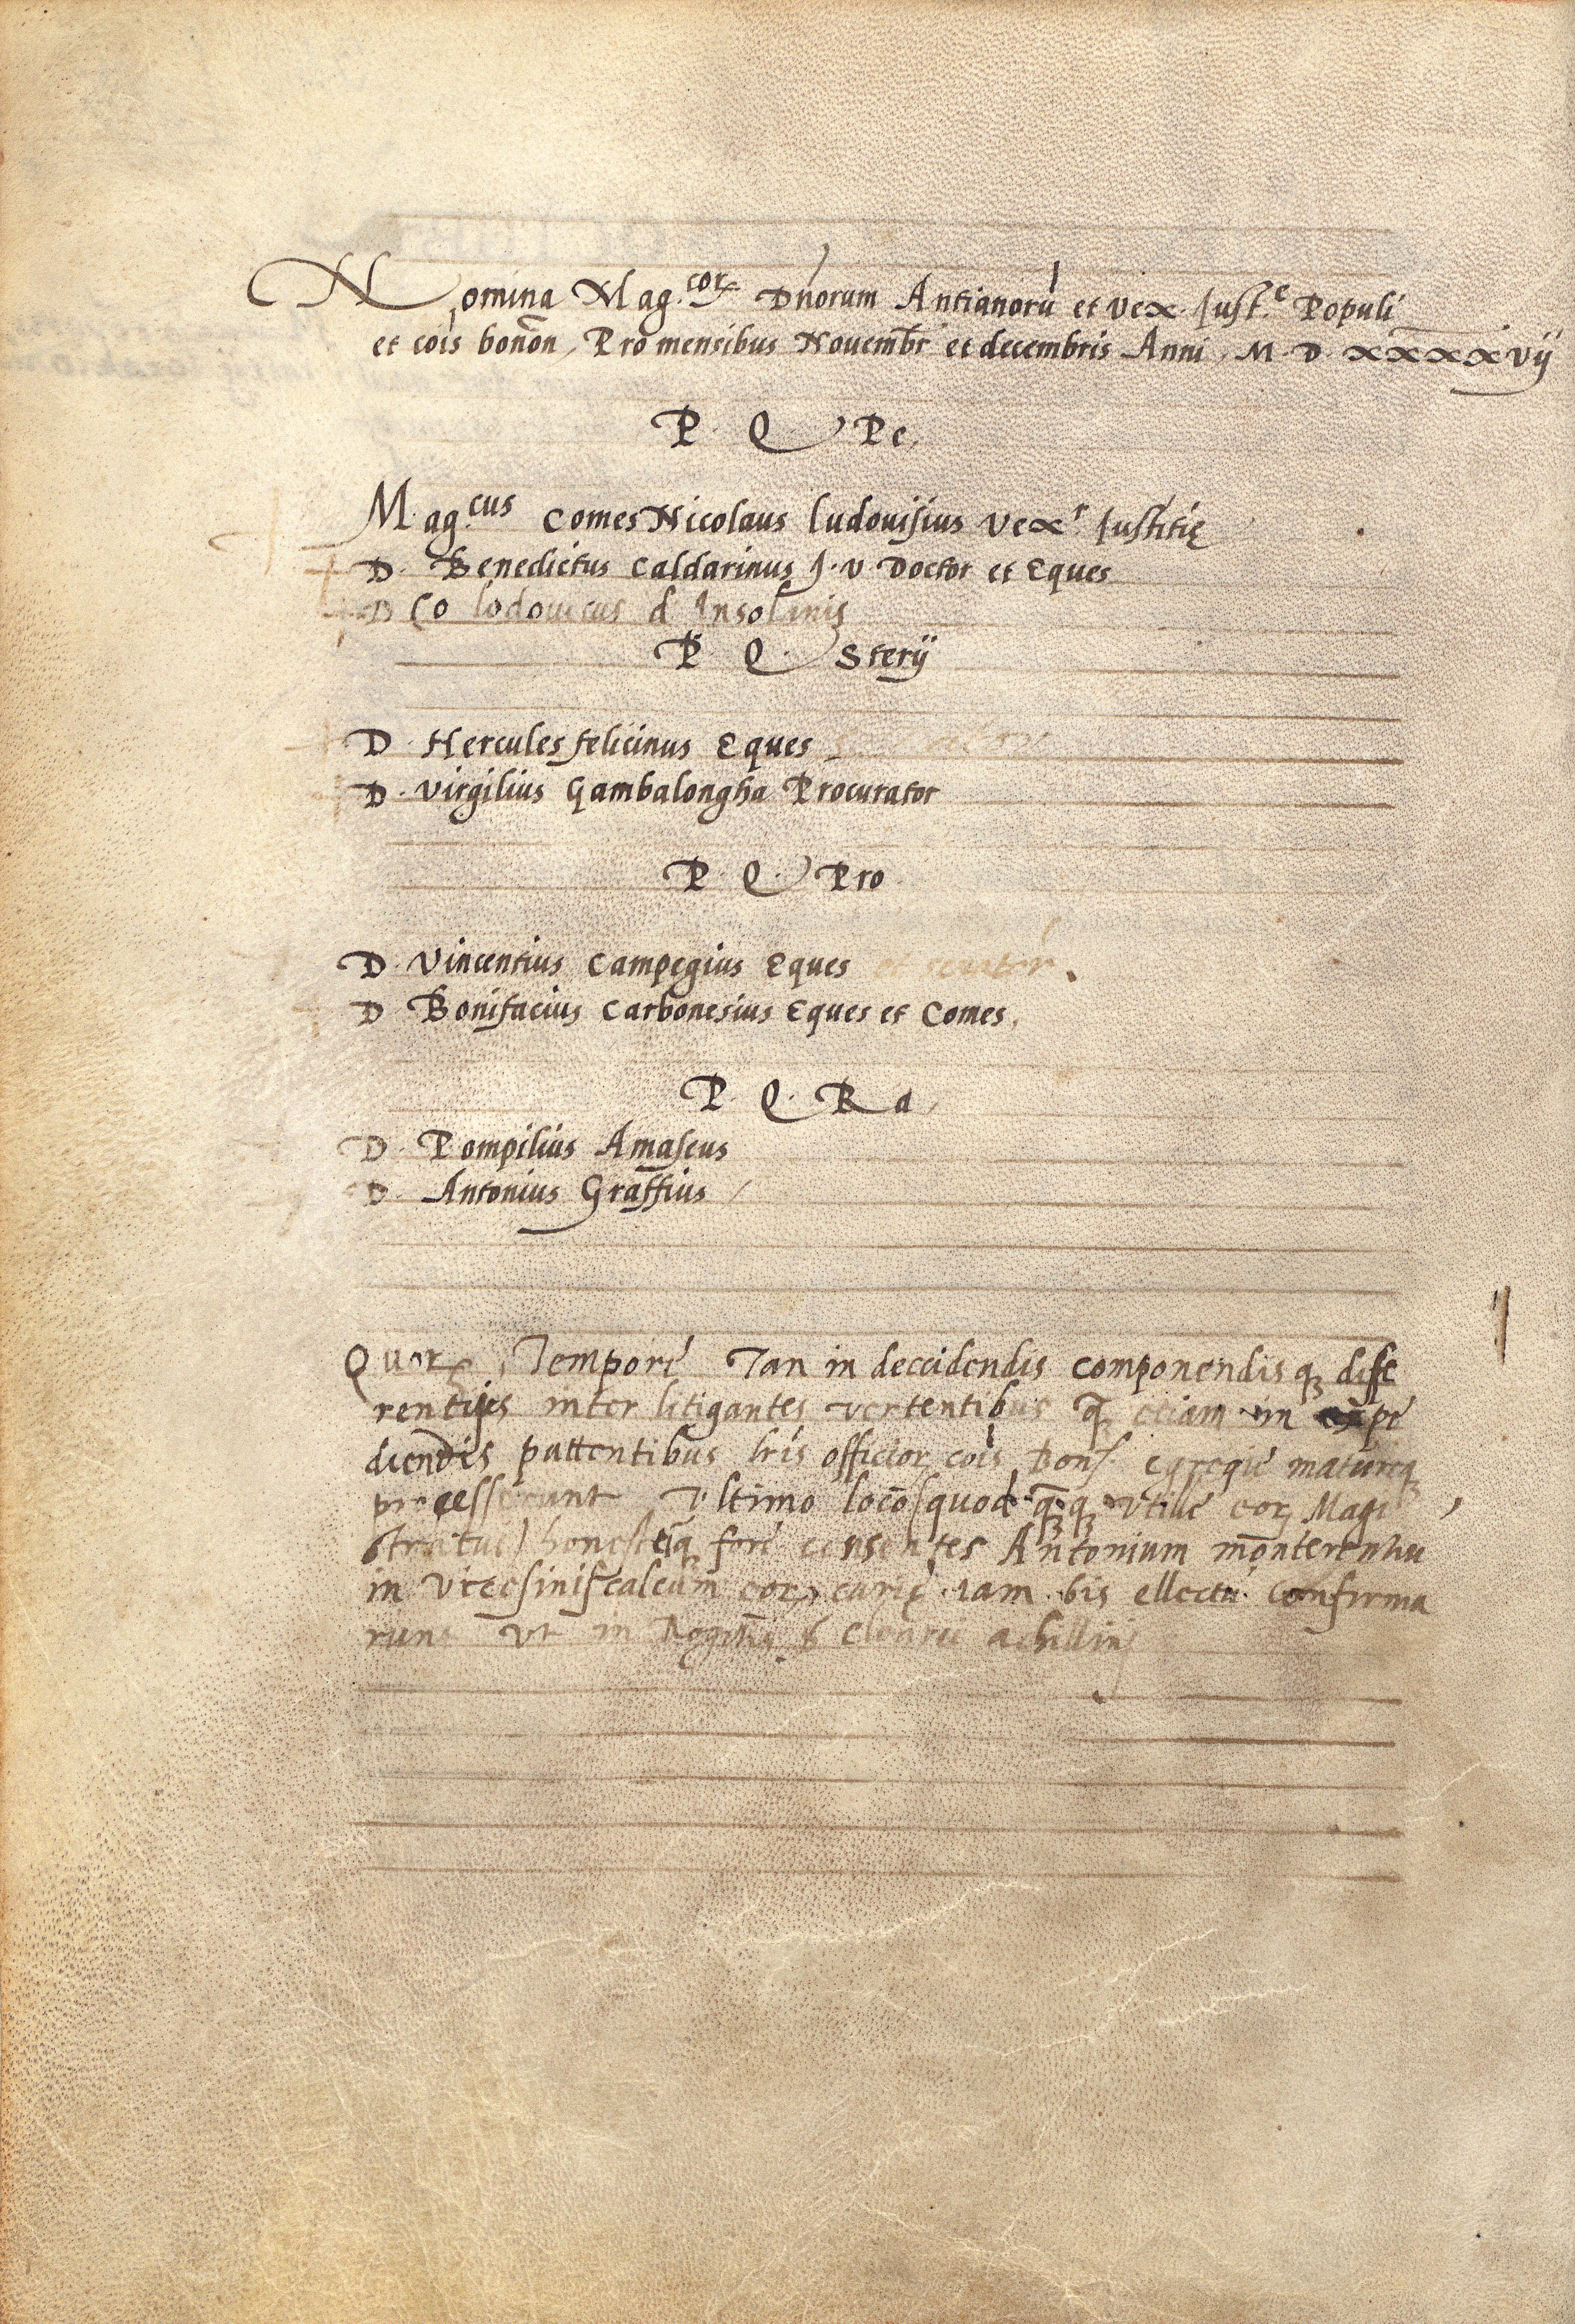 Nomina Mag.cor Dnorum Antianorū et vex. Iust.e Populi
et cōis bonōn, Pro mensibus Nouembr̄ et decembris Anni, M. D. xxxxvij
P. Q. Pe.
Mag.cus Comes Nicolaus ludouisius vex.r Iustitię
D. Benedictus Caldarinus J. v. Doctor et Eques
D Co lodouicus d Insolanis
P Q. Sterij
D. Hercules felicinus Eques
D. Virgilius Gambalongha Procurator
P. Q. Pro
D. Vincentius Campegius Eques et senator.
D Bonifacius Carbonesius Eques et Comes.
P. Q. Ra.
D. Pompilius Amaseus
D. Antonius Graffius
Quor Tempore Tan in deccidendis componendisq dife
rentijs inter litigantes vertentibus q etiam in expe
diendis pattentibus lr̄is officior cōis Bon. egregie matureq
processerunt Vltimo loco (quod q̄q vtile eor Magi
stratus) honesteq fore censentes Antonium mōnterenhu
in vicesiniscalcum eor curię iam bis ellectū confirma
runt vt in achillini